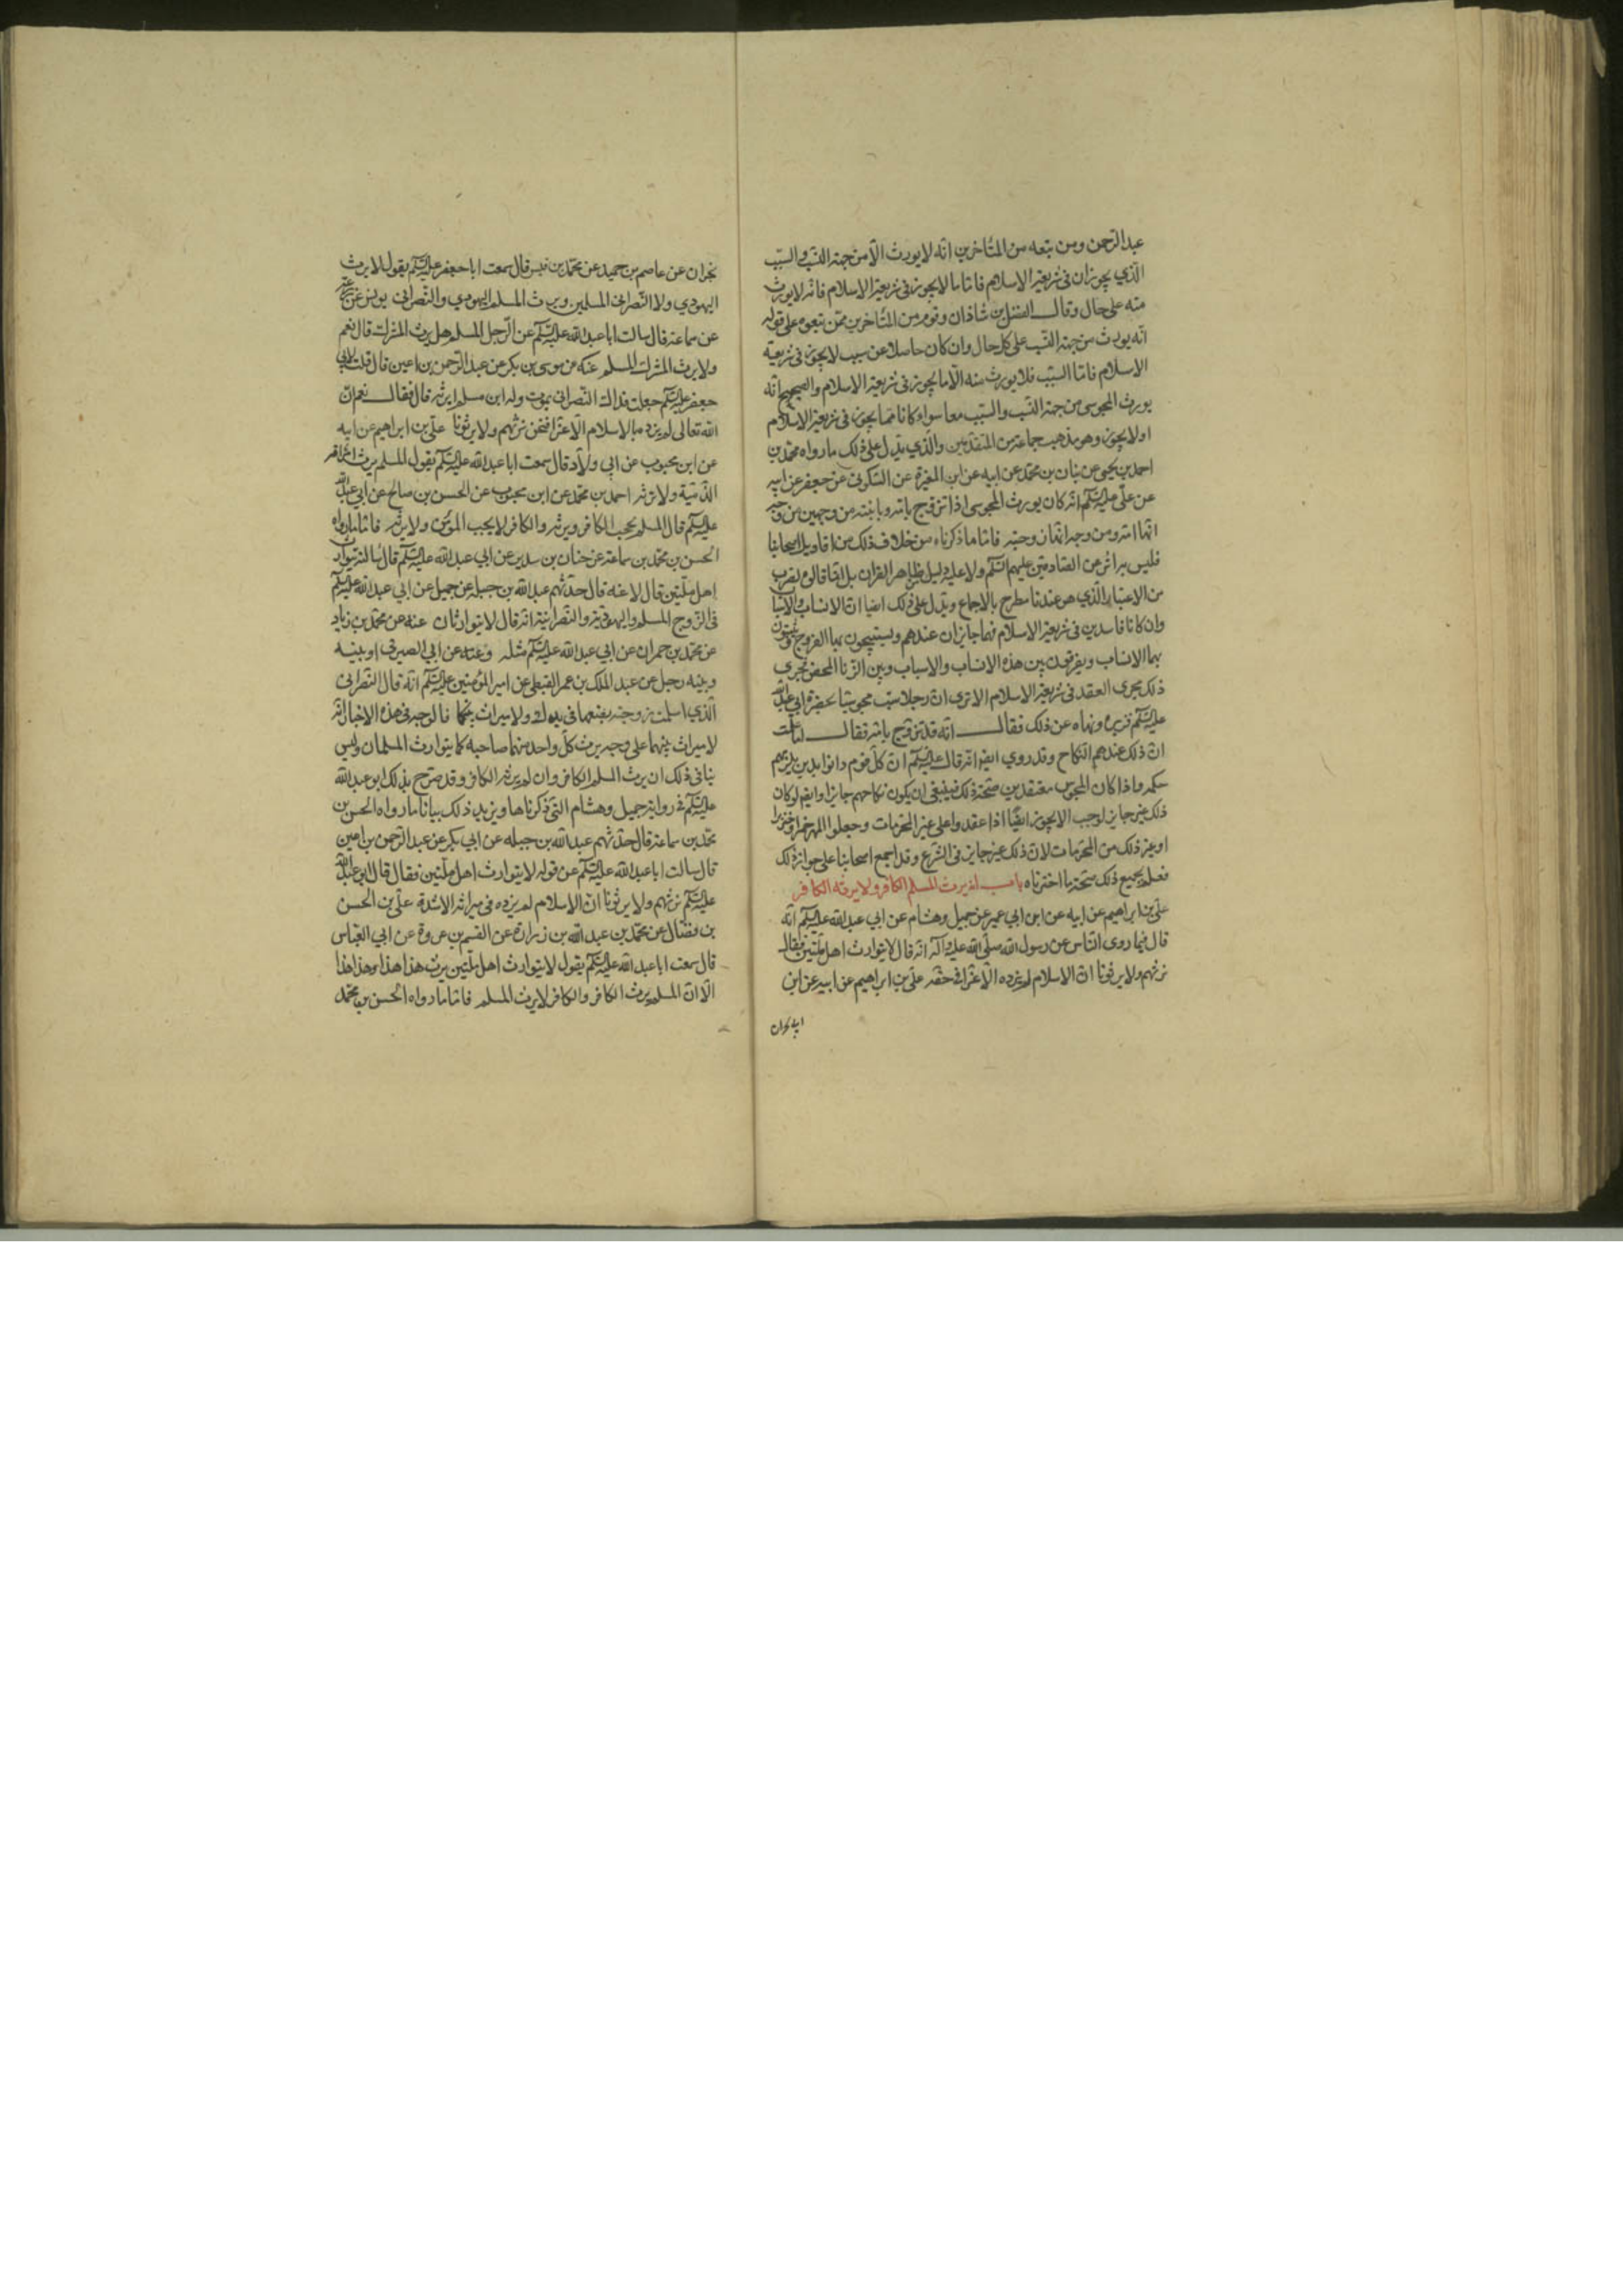 عبد الرحمن ومن تبعه من المتأخرين انه لا يورث الا من جهة النسب والسبب
الذي يجوزان في شريعة الاسلام فاما ما لا يجوز في شريعة الاسلام فانه لا يورث
منه على حال وقال الفضل بن شاذان وقوم من المتأخرين ممن تبعوه على قوله
انه يورث من جهة النسب على كل حال وان كان حاصلا عن سبب لا يجوز في شريعة
الاسلام فاما السبب فلا يورث منه الا ما يجوز في شريعة الاسلام والصحيح انه
يورث المجوسي من جهة النسب والسبب معا سواء كانا مما يجوز في شريعة الاسلام
او لا يجوز وهو مذهب جماعة من المتقدمين والذي يدل على ذلك ما رواه محمد بن
احمد بن يحيى عن بنان بن محمد عن ابيه عن ابن المغيرة عن السكوني عن جعفر عن ابيه
عن علي عليه السلم انه كان يورث المجوسي اذا تزوج بامه وبابنته من وجهين من وجه
انها امه ومن وجه انها زوجته فاما ما ذكرناه من خلاف ذلك من اقاويل اصحابنا
فليس به اثر عن الصادقين عليهم السلم ولا عليه دليل من ظاهر القران بل انما قالوه لضرب
من الاعتبار الذي هو عندنا مطرح بالاجماع ويدل على ذلك ايضا ان الانساب والاسباب
وان كانا فاسدين في شريعة الاسلام فهما جايزان عندهم ويستبيحون بهما الفروج ويثبتون
بهما الانساب ويفرقون بين هذه الانساب والاسباب وبين الزنا المحض فجرى
ذلك مجرى العقد في شريعة الاسلام الا ترى ان رجلا سب مجوسيا بحضرة ابي عبد الله
عليه السلم فزبره ونهاه عن ذلك فقال انه قد تزوج بامه فقال اما علمت
ان ذلك عندهم النكاح وقد روي ايضا انه قال عليه السلم ان كل قوم دانوا بدين يلزمهم
حكمه واذا كان المجوس معتقدين صحة ذلك فينبغي ان يكون نكاحهم جايزا وايضا لو كان
ذلك غير جايز لوجب الا يجوز ايضا اذا عقدوا على غير المحرمات وجعلوا المهر خمرا او خنزيرا
او غير ذلك من المحرمات لان ذلك غير جايز في الشرع وقد اجمع اصحابنا على جواز ذلك
فعلم بجميع ذلك صحة ما اخترناه باب انه يرث المسلم الكافر ولا يرثه الكافر
علي بن ابراهيم عن ابيه عن ابن ابي عمير عن جميل وهشام عن ابي عبد الله عليه السلم انه
قال فيما روى الناس عن رسول الله صلى الله عليه واله انه قال لا يتوارث اهل ملتين فقال
نرثهم ولا يرثونا ان الاسلام لم يزده الا عزا في حقه علي بن ابراهيم عن ابيه عن ابن
نجران عن عاصم بن حميد عن محمد بن قيس قال سمعت ابا جعفر عليه السلم يقول لا يرث
اليهودي ولا النصراني المسلمين ويرث المسلم اليهودي والنصراني يونس عن زرعة
عن سماعة قال سالت ابا عبد الله عليه السلم عن الرجل المسلم هل يرث المشرك قال نعم
ولا يرث المشرك المسلم عنه عن موسى بن بكر عن عبد الرحمن بن اعين قال قلت لابي
جعفر عليه السلم جعلت فداك النصراني يموت وله ابن مسلم ايرثه قال فقال نعم ان
الله تعالى لم يزدنا بالاسلام الا عزا فنحن نرثهم ولا يرثونا علي بن ابراهيم عن ابيه
عن ابن محبوب عن ابي ولاد قال سمعت ابا عبد الله عليه السلم يقول المسلم يرث امرأته
الذمية ولا ترثه احمد بن محمد عن ابن محبوب عن الحسن بن صالح عن ابي عبد الله
عليه السلم قال المسلم يحجب الكافر ويرثه والكافر لا يحجب المؤمن ولا يرثه فاما ما رواه
الحسن بن محمد بن سماعة عن حنان بن سدير عن ابي عبد الله عليه السلم قال سالته يتوارث
اهل ملتين قال لا عنه قال حدثهم عبد الله بن جبلة عن جميل عن ابي عبد الله عليه السلم
في الزوج المسلم واليهودية والنصرانية انه قال لا يتوارثان عنه عن محمد بن زياد
عن محمد بن حمران عن ابي عبد الله عليه السلم مثله وعنه عن ابي الصيرفي او بينه
وبينه رجل عن عبد الملك بن عمير القبطي عن امير المؤمنين عليه السلم انه قال النصراني
الذي اسلمت زوجته بضعها في يدك ولا ميراث بينكما فالوجه في هذه الاخبار انه
لا ميراث بينهما على وجه يرث كل واحد منهما صاحبه كما يتوارث المسلمان وليس
ينافي ذلك ان يرث المسلم الكافر وان لم يرثه الكافر وقد صرح بذلك ابو عبد الله
عليه السلم في رواية جميل وهشام التي ذكرناها ويزيد ذلك بيانا ما رواه الحسن بن
محمد بن سماعة قال حدثهم عبد الله بن جبله عن ابي بكر عن عبد الرحمن بن اعين
قال سالت ابا عبد الله عليه السلم عن قوله لا يتوارث اهل ملتين فقال قال ابو عبد الله
عليه السلم نرثهم ولا يرثونا ان الاسلام لم يزده في ميراثه الا شدة علي بن الحسن
بن فضال عن محمد بن عبد الله بن زرارة عن القسم بن عروة عن ابي العباس
قال سمعت ابا عبد الله عليه السلم يقول لا يتوارث اهل ملتين يرث هذا هذا وهذا هذا
الا ان المسلم يرث الكافر والكافر لا يرث المسلم فاما ما رواه الحسن بن محمد